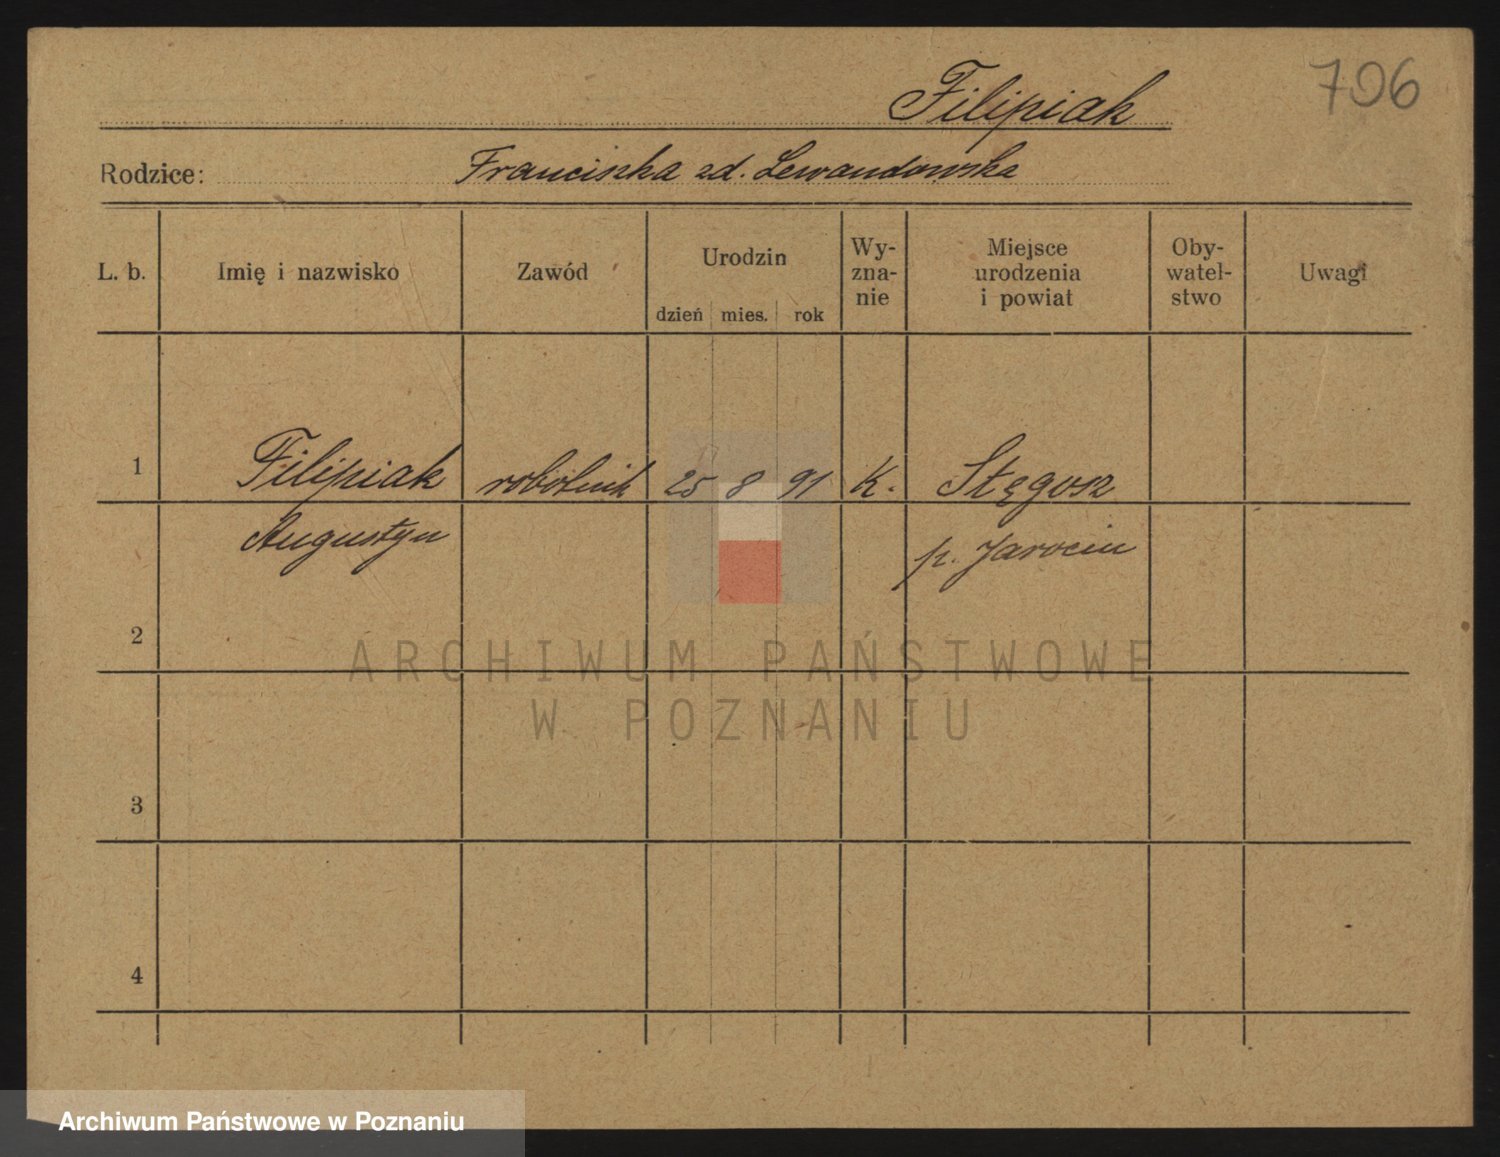 706
Filipiak
Rodzice: Franciszka zd. Lewandowska
L. b. Imię i nazwisko Zawód Urodzin dzień mies. rok Wy-zna-nie Miejsce urodzenia i powiat Oby-watel-stwo Uwagi
1 Filipiak robotnik 25 8 91 K. Stęgosz
Augustyn p. Jarocin
2
3
4
ARCHIWUM PAŃSTWOWE
W POZNANIU
Archiwum Państwowe w Poznaniu